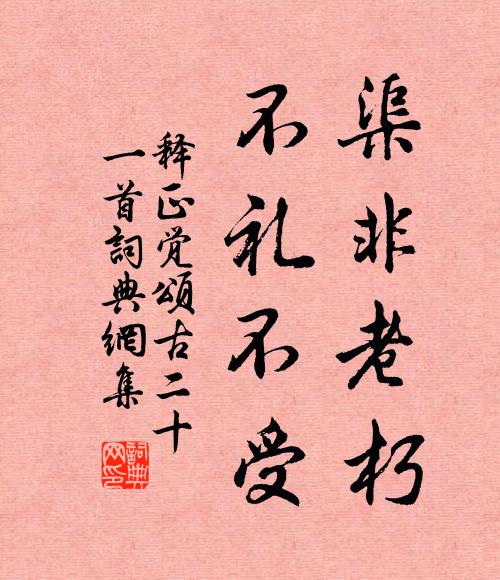 渠非老朽
不礼不受
释正觉颂古二十
一首詞典網集
詞典
网印